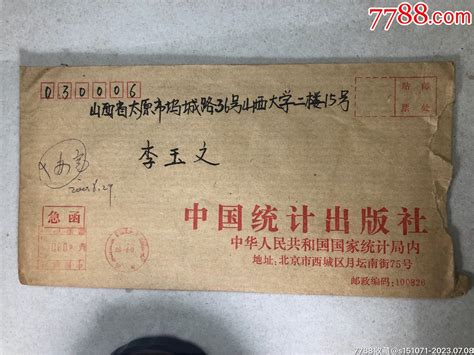 7788.com
030006
贴邮
票处
山西省太原市坞城路36号山西大学二楼15号
李玉文
急函
中国统计出版社
中华人民共和国国家统计局内
地址:北京市西城区月坛南街75号
邮政编码:100826
7788收藏@s151071-2023.07.08